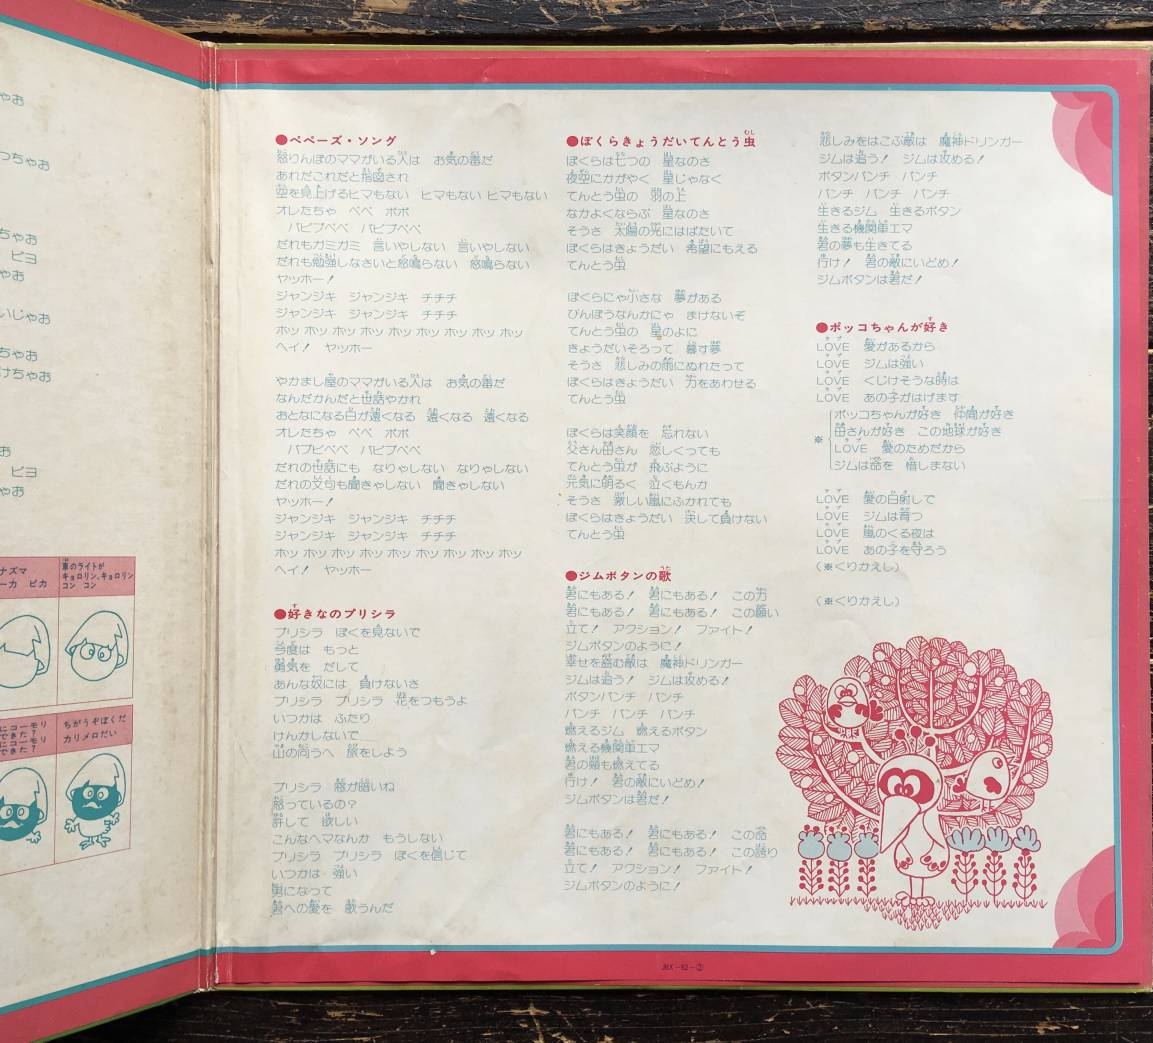 ゃお
っちゃお
ちゃお
ピヨ
ゃお
いじゃお
ちゃお
けちゃお
お
ピヨ
ゃお
ナズマ
ーカ ピカ
車のライトが
キョロリン、キョロリン
コン コン
にコーモリ
できた?
にコーモリ
できた?
ちがうぞぼくだ
カリメロだい
●ペペーズ・ソング
怒りんぼのママがいる人は お気の毒だ
あれだこれだと指図され
空を見上げるヒマもない ヒマもない ヒマもない
オレたちゃ ペペ ポポ
パピプペペ パピプペペ
だれもガミガミ 言いやしない 言いやしない
だれも勉強しなさいと怒鳴らない 怒鳴らない
ヤッホー!
ジャンジキ ジャンジキ チチチ
ジャンジキ ジャンジキ チチチ
ホッ ホッ ホッ ホッ ホッ ホッ ホッ ホッ ホッ
ヘイ! ヤッホー
やかまし屋のママがいる人は お気の毒だ
なんだかんだと世話やかれ
おとなになる日が遠くなる 遠くなる 遠くなる
オレたちゃ ペペ ポポ
パプピペペ パピプペペ
だれの世話にも なりゃしない なりゃしない
だれの文句も聞きゃしない 聞きゃしない
ヤッホー!
ジャンジキ ジャンジキ チチチ
ジャンジキ ジャンジキ チチチ
ホッ ホッ ホッ ホッ ホッ ホッ ホッ ホッ ホッ
ヘイ! ヤッホー
●好きなのプリシラ
プリシラ ぼくを見ないで
今度は もっと
勇気を だして
あんな奴には 負けないさ
プリシラ プリシラ 花をつもうよ
いつかは ふたり
けんかしないで
山の向うへ 旅をしよう
プリシラ 窓が暗いね
怒っているの?
許して 欲しい
こんなヘマなんか もうしない
プリシラ プリシラ ぼくを信じて
いつかは 強い
男になって
君への愛を 歌うんだ
●ぼくらきょうだいてんとう虫
ぼくらは七つの 星なのさ
夜空にかがやく 星じゃなく
てんとう虫の 羽の上
なかよくならぶ 星なのさ
そうさ 太陽の光にはばたいて
ぼくらはきょうだい 希望にもえる
てんとう虫
ぼくらにゃ小さな 夢がある
びんぼうなんかにゃ まけないぞ
てんとう虫の 星のよに
きょうだいそろって 暮す夢
そうさ 悲しみの雨にぬれたって
ぼくらはきょうだい 力をあわせる
てんとう虫
ぼくらは笑顔を 忘れない
父さん母さん 恋しくっても
てんとう虫が 飛ぶように
元気に明るく 泣くもんか
そうさ 激しい嵐にふかれても
ぼくらはきょうだい 決して負けない
てんとう虫
●ジムボタンの歌
君にもある! 君にもある! この力
君にもある! 君にもある! この願い
立て! アクション! ファイト!
ジムボタンのように!
幸せを盗む敵は 魔神ドリンガー
ジムは追う! ジムは攻める!
ボタンパンチ パンチ
パンチ パンチ パンチ
燃えるジム 燃えるボタン
燃える機関車エマ
君の頬も燃えてる
行け! 君の敵にいどめ!
ジムボタンは君だ!
君にもある! 君にもある! この命
君にもある! 君にもある! この誇り
立て! アクション! ファイト!
ジムボタンのように!
悲しみをはこぶ敵は 魔神ドリンガー
ジムは追う! ジムは攻める!
ボタンパンチ パンチ
パンチ パンチ パンチ
生きるジム 生きるボタン
生きる機関車エマ
君の夢も生きてる
行け! 君の敵にいどめ!
ジムボタンは君だ!
●ポッコちゃんが好き
LOVE 愛があるから
LOVE ジムは強い
LOVE くじけそうな時は
LOVE あの子がはげます
※ ポッコちゃんが好き 仲間が好き
母さんが好き この地球が好き
LOVE 愛のためだから
ジムは命を 惜しまない
LOVE 愛の日射しで
LOVE ジムは育つ
LOVE 嵐のくる夜は
LOVE あの子を守ろう
(※くりかえし)
(※くりかえし)
JBX-62-②